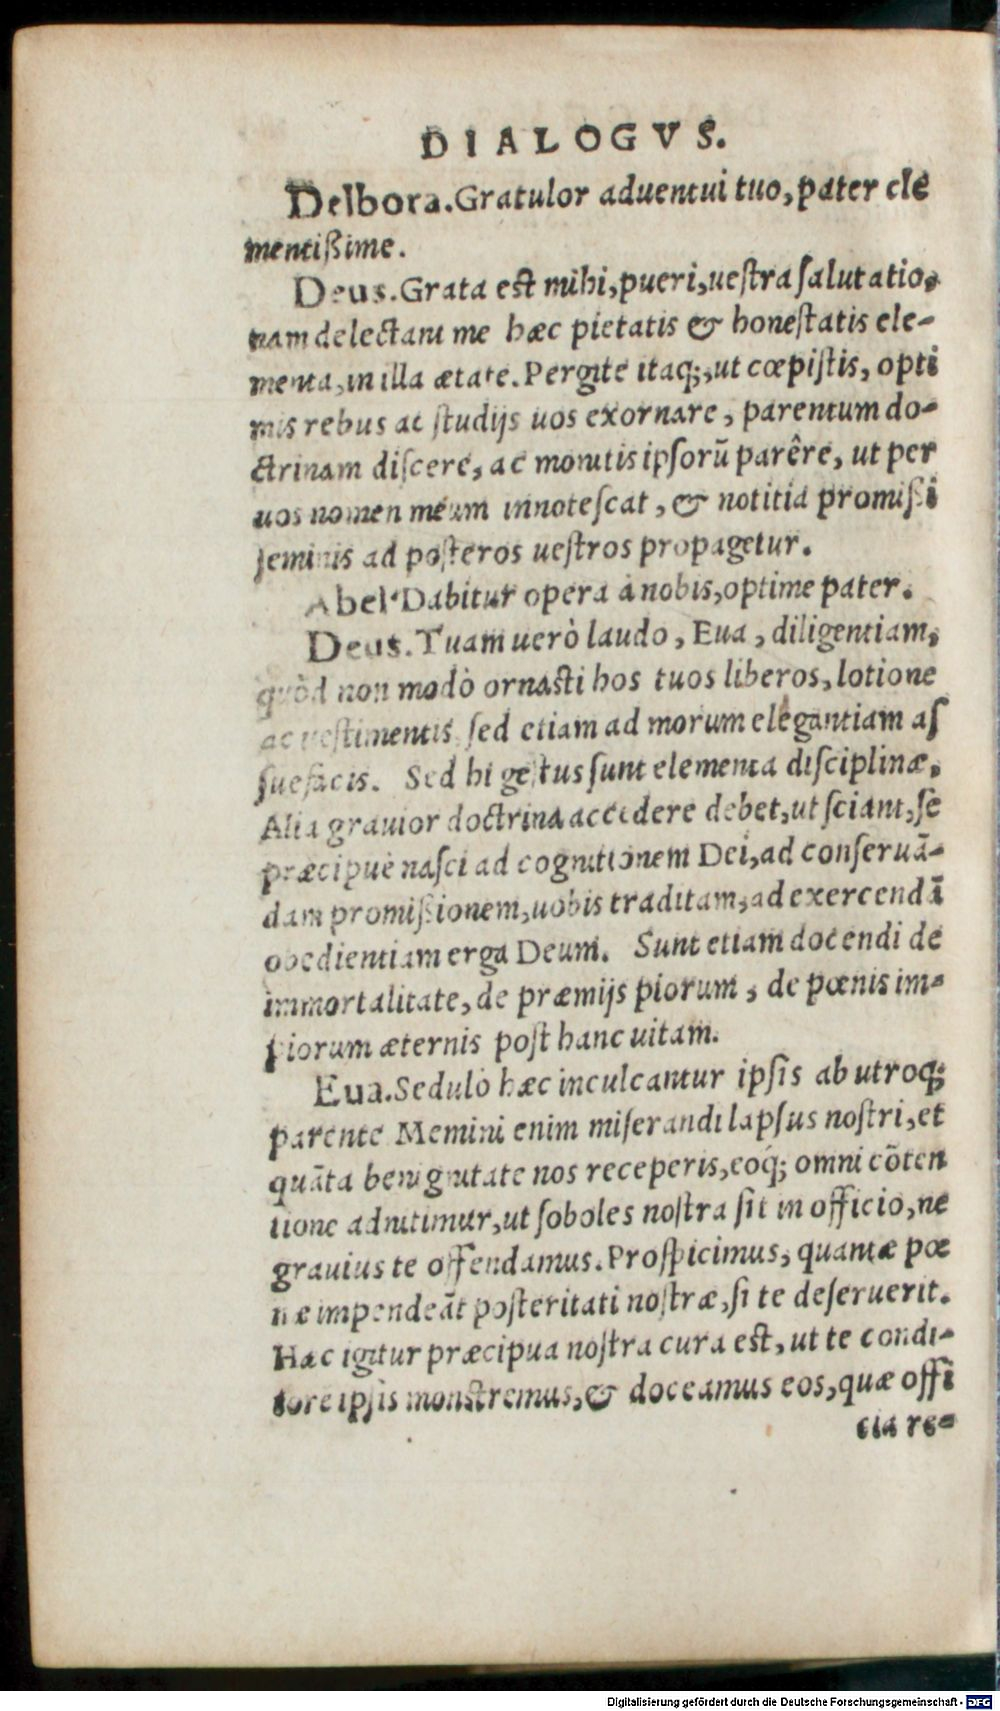 DIALOGVS.
Delbora. Gratulor aduentui tuo, pater cle
mentißime.
Deus. Grata est mihi, pueri, uestra salutatio,
nam delectant me hæc pietatis & honestatis ele-
menta, in illa ætate. Pergite itaq;, ut cœpistis, opti
mis rebus ac studijs uos exornare, parentum do-
ctrinam discere, ac monitis ipsorū parêre, ut per
uos nomen meum innotescat, & notitia promißi
seminis ad posteros uestros propagetur.
Abel. Dabitur opera à nobis, optime pater.
Deus. Tuam uerò laudo, Eua, diligentiam,
quòd non modò ornasti hos tuos liberos, lotione
ac uestimentis sed etiam ad morum elegantiam as
suefacis. Sed hi gestus sunt elementa disciplinæ,
Alia grauior doctrina accedere debet, ut sciant, se
præcipuè nasci ad cognitionem Dei, ad conseruā-
dam promißionem, uobis traditam, ad exercendā
obedientiam erga Deum. Sunt etiam docendi de
immortalitate, de præmijs piorum, de pœnis im-
piorum æternis post hanc uitam.
Eua. Sedulò hæc inculcantur ipsis ab utroq;
parente Memini enim miserandi lapsus nostri, et
quāta benignitate nos receperis, eoq́; omni cōten
tione adnitimur, ut soboles nostra sit in officio, ne
grauius te offendamus. Prospicimus, quantæ pœ
næ impendeāt posteritati nostræ, si te deseruerit.
Hæc igitur præcipua nostra cura est, ut te condi-
tore ipsis monstremus, & doceamus eos, quæ offi
cia re-
Digitalisierung gefördert durch die Deutsche Forschungsgemeinschaft - DFG